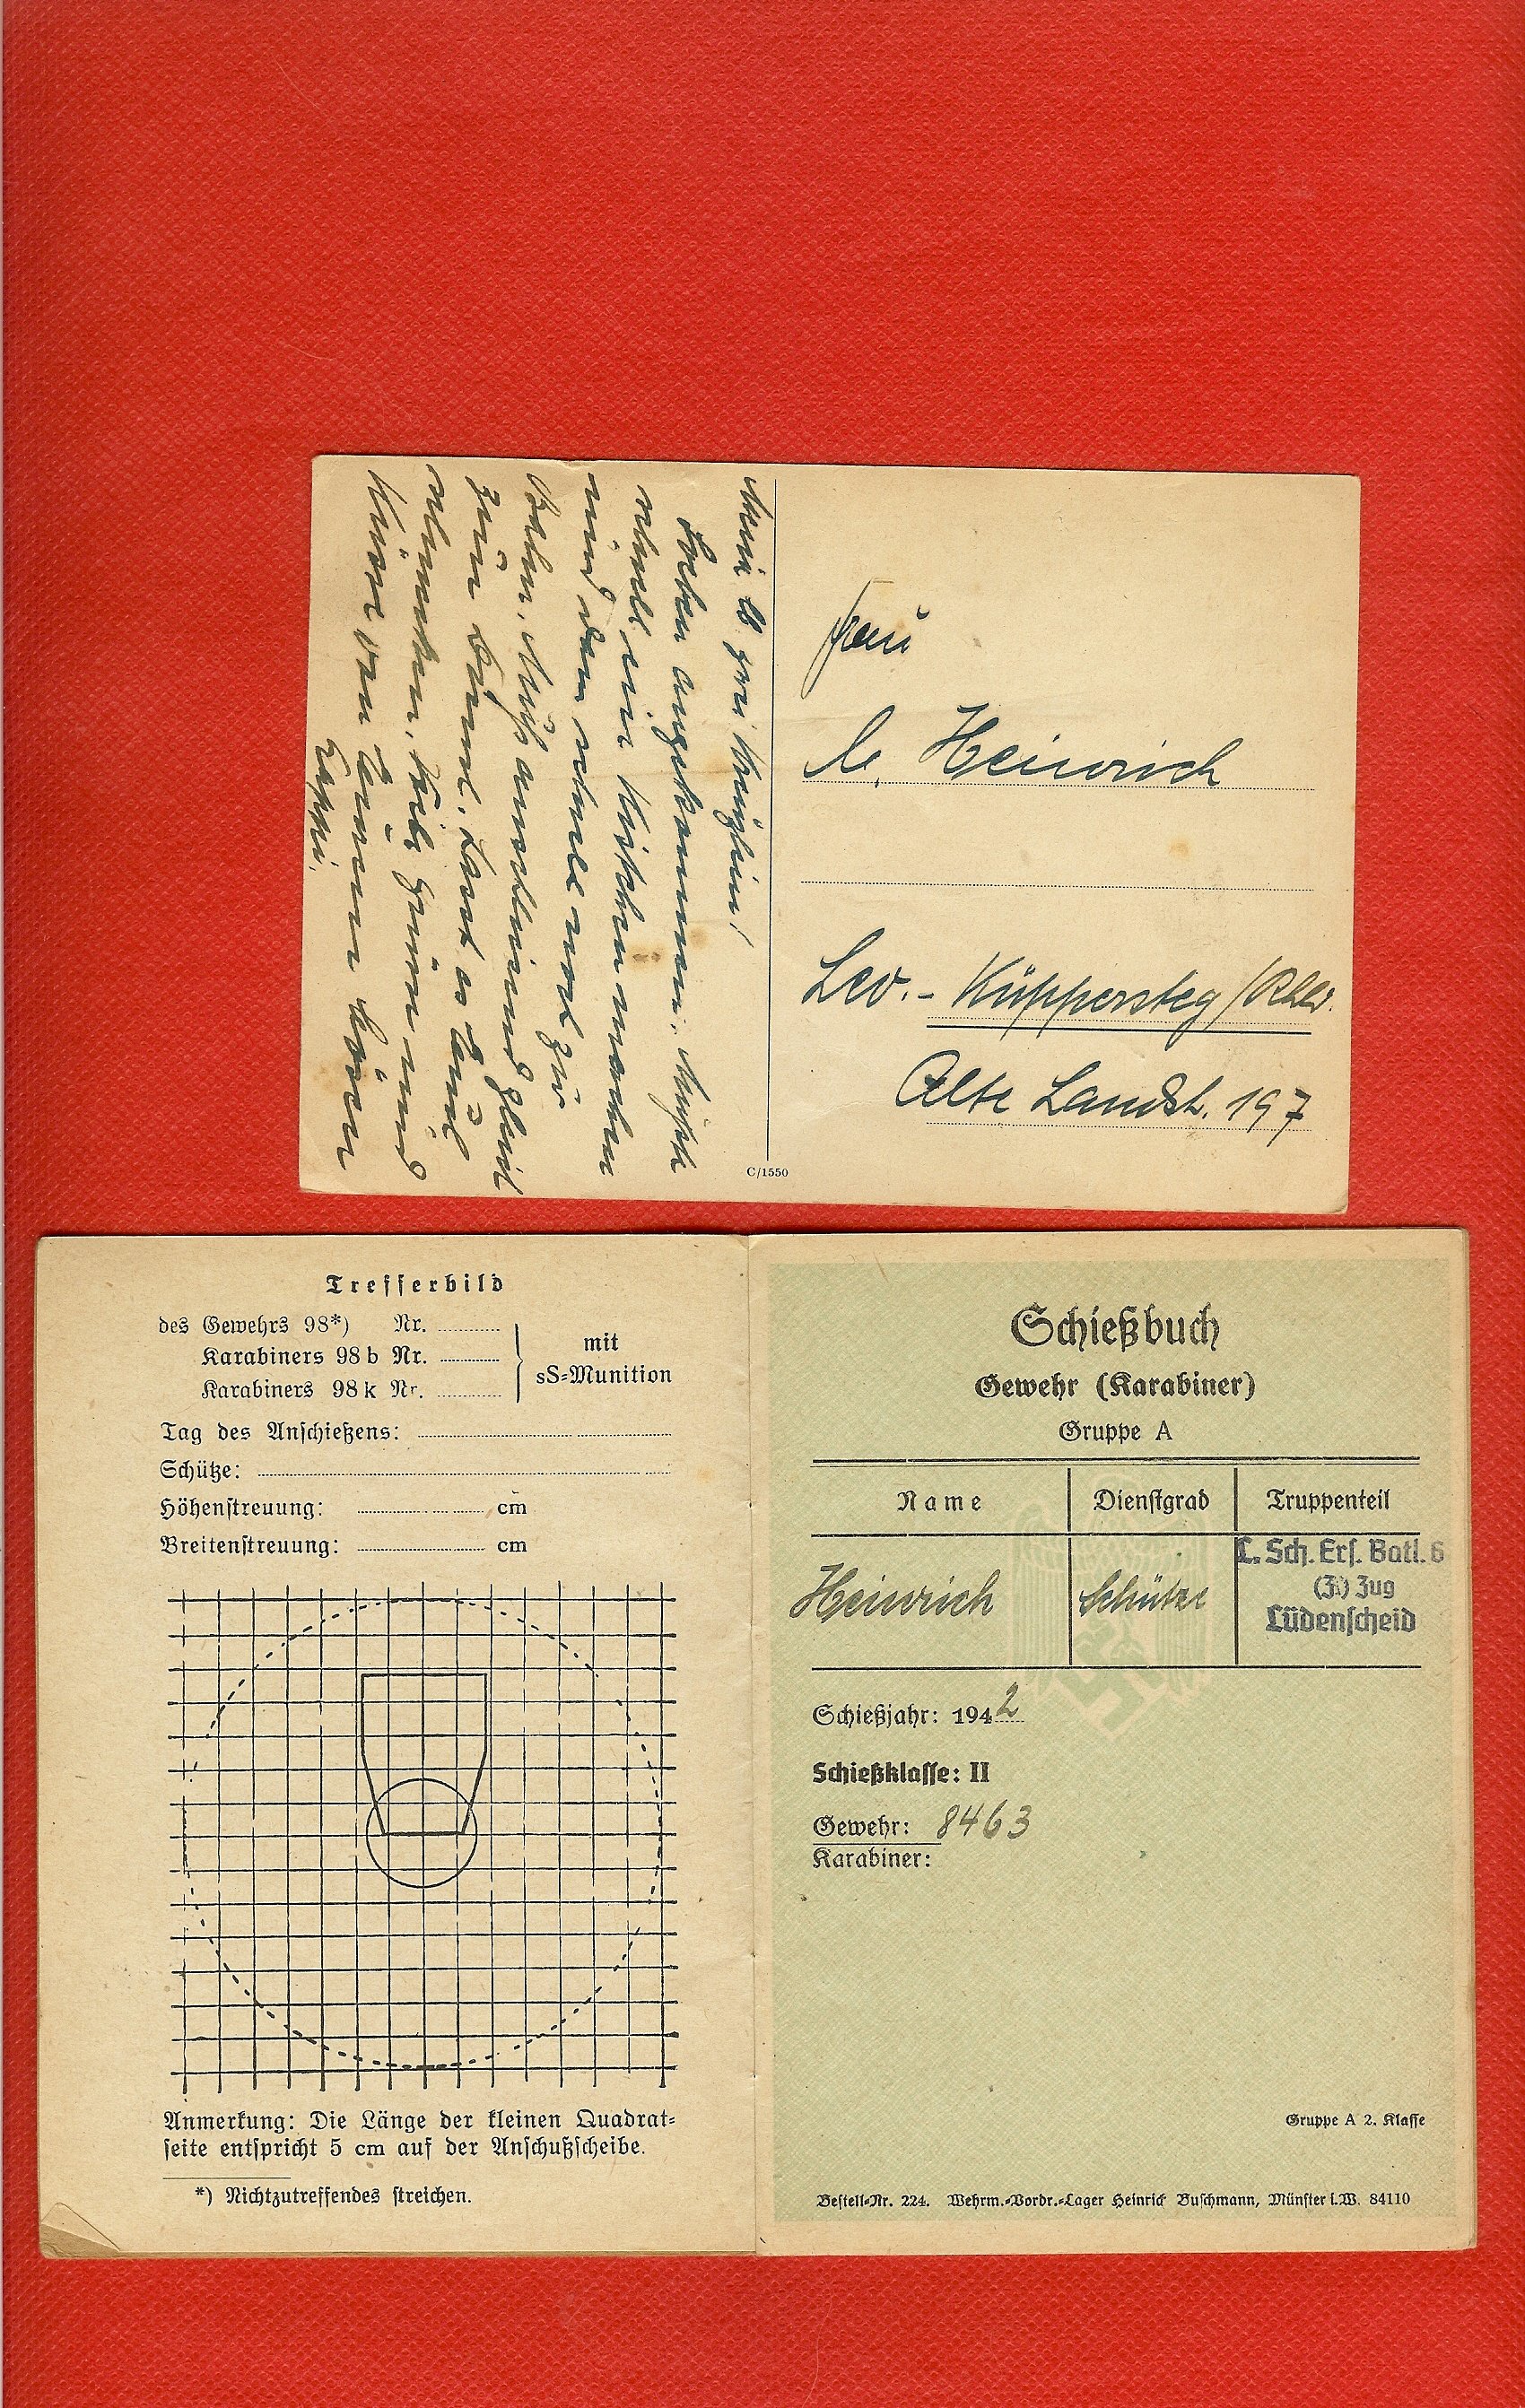 Frau
Heinrich
Lev.- Küppersteg /Rhld.
Alte Landstr. 197
C/1550
Soeben angekommen. Mußt
schnell ein Kistchen machen
und dann schnell noch zur
Bahn. Muß anschließend gleich
zum
von Eurem
Trefferbild
des Gewehrs 98*) Nr.
Karabiners 98 b Nr.
Karabiners 98 k Nr.
mit
sS=Munition
Tag des Anschießens:
Schütze:
Höhenstreuung: cm
Breitenstreuung: cm
Anmerkung: Die Länge der kleinen Quadrat=
seite entspricht 5 cm auf der Anschußscheibe.
*) Nichtzutreffendes streichen.
Schießbuch
Gewehr (Karabiner)
Gruppe A
Name Dienstgrad Truppenteil
Heinrich Schütze L. Sch. Ers. Batl. 6
Zug
Lüdenscheid
Schießjahr: 1942
Schießklasse: II
Gewehr: 8463
Karabiner:
Gruppe A 2. Klasse
Bestell=Nr. 224. Wehrm.=Vordr.=Lager Heinrich Buschmann, Münster i. W. 84110